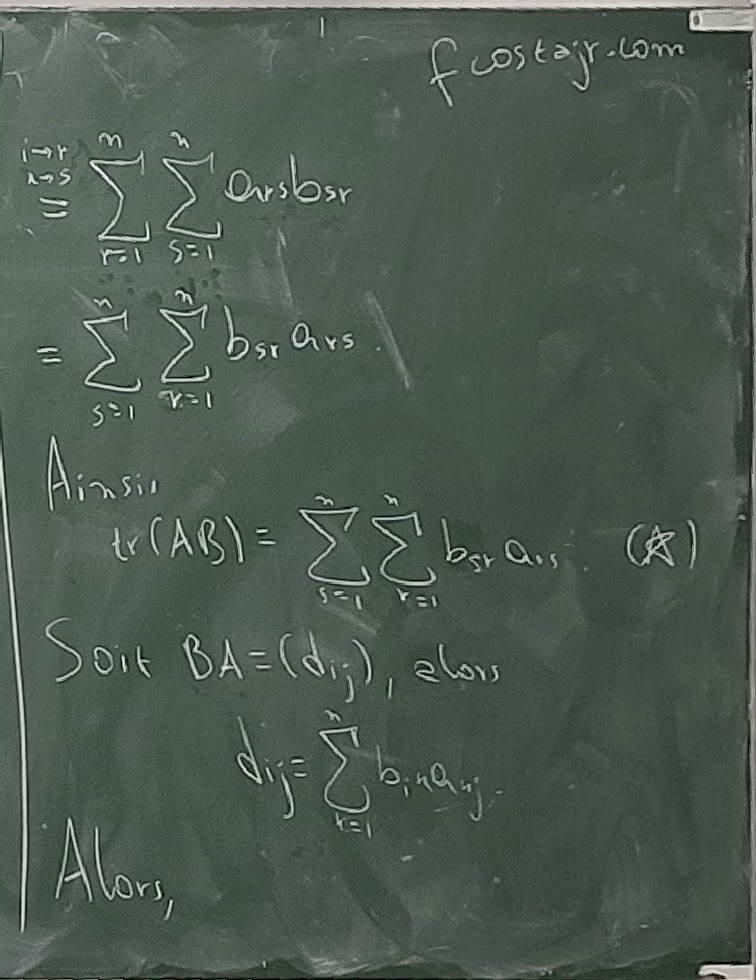 fcostajr.com
i→r
k→s
= ∑_{r=1}^{n} ∑_{s=1}^{n} a_{rs} b_{sr}
= ∑_{s=1}^{n} ∑_{r=1}^{n} b_{sr} a_{rs}.
Ainsi,
tr(AB) = ∑_{s=1}^{n} ∑_{r=1}^{n} b_{sr} a_{rs}. (☆)
Soit BA=(d_{ij}), alors
d_{ij} = ∑_{k=1}^{n} b_{ik} a_{kj}.
Alors,